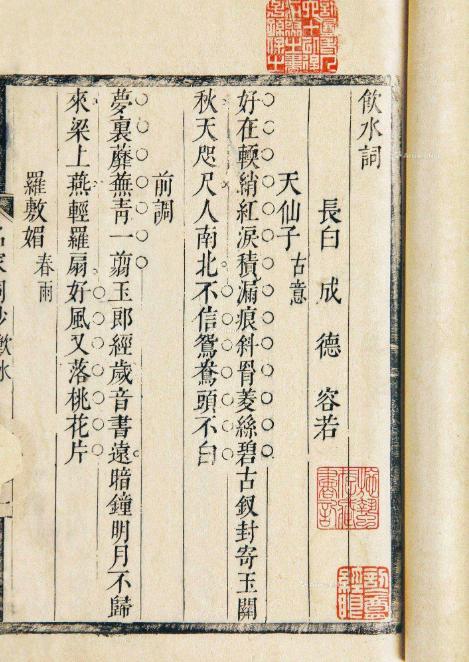 飲水詞
長白 成 德 容若
天仙子 古意
好在軟綃紅淚積漏痕斜罥菱絲碧古釵封寄玉關
秋天咫尺人南北不信鴛鴦頭不白
前調
夢裏蘼蕪青一翦玉郎經歲音書遠暗鐘明月不歸
來梁上燕輕羅扇好風又落桃花片
羅敷媚 春雨
名家詞鈔飲水